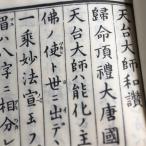 天台大師和讃
歸命頂禮大唐國
天台大師ハ能化ノ主
佛ノ使ト世ニ出デ
一乗妙法宣玉フ
眉ハ八字ニ相分レ